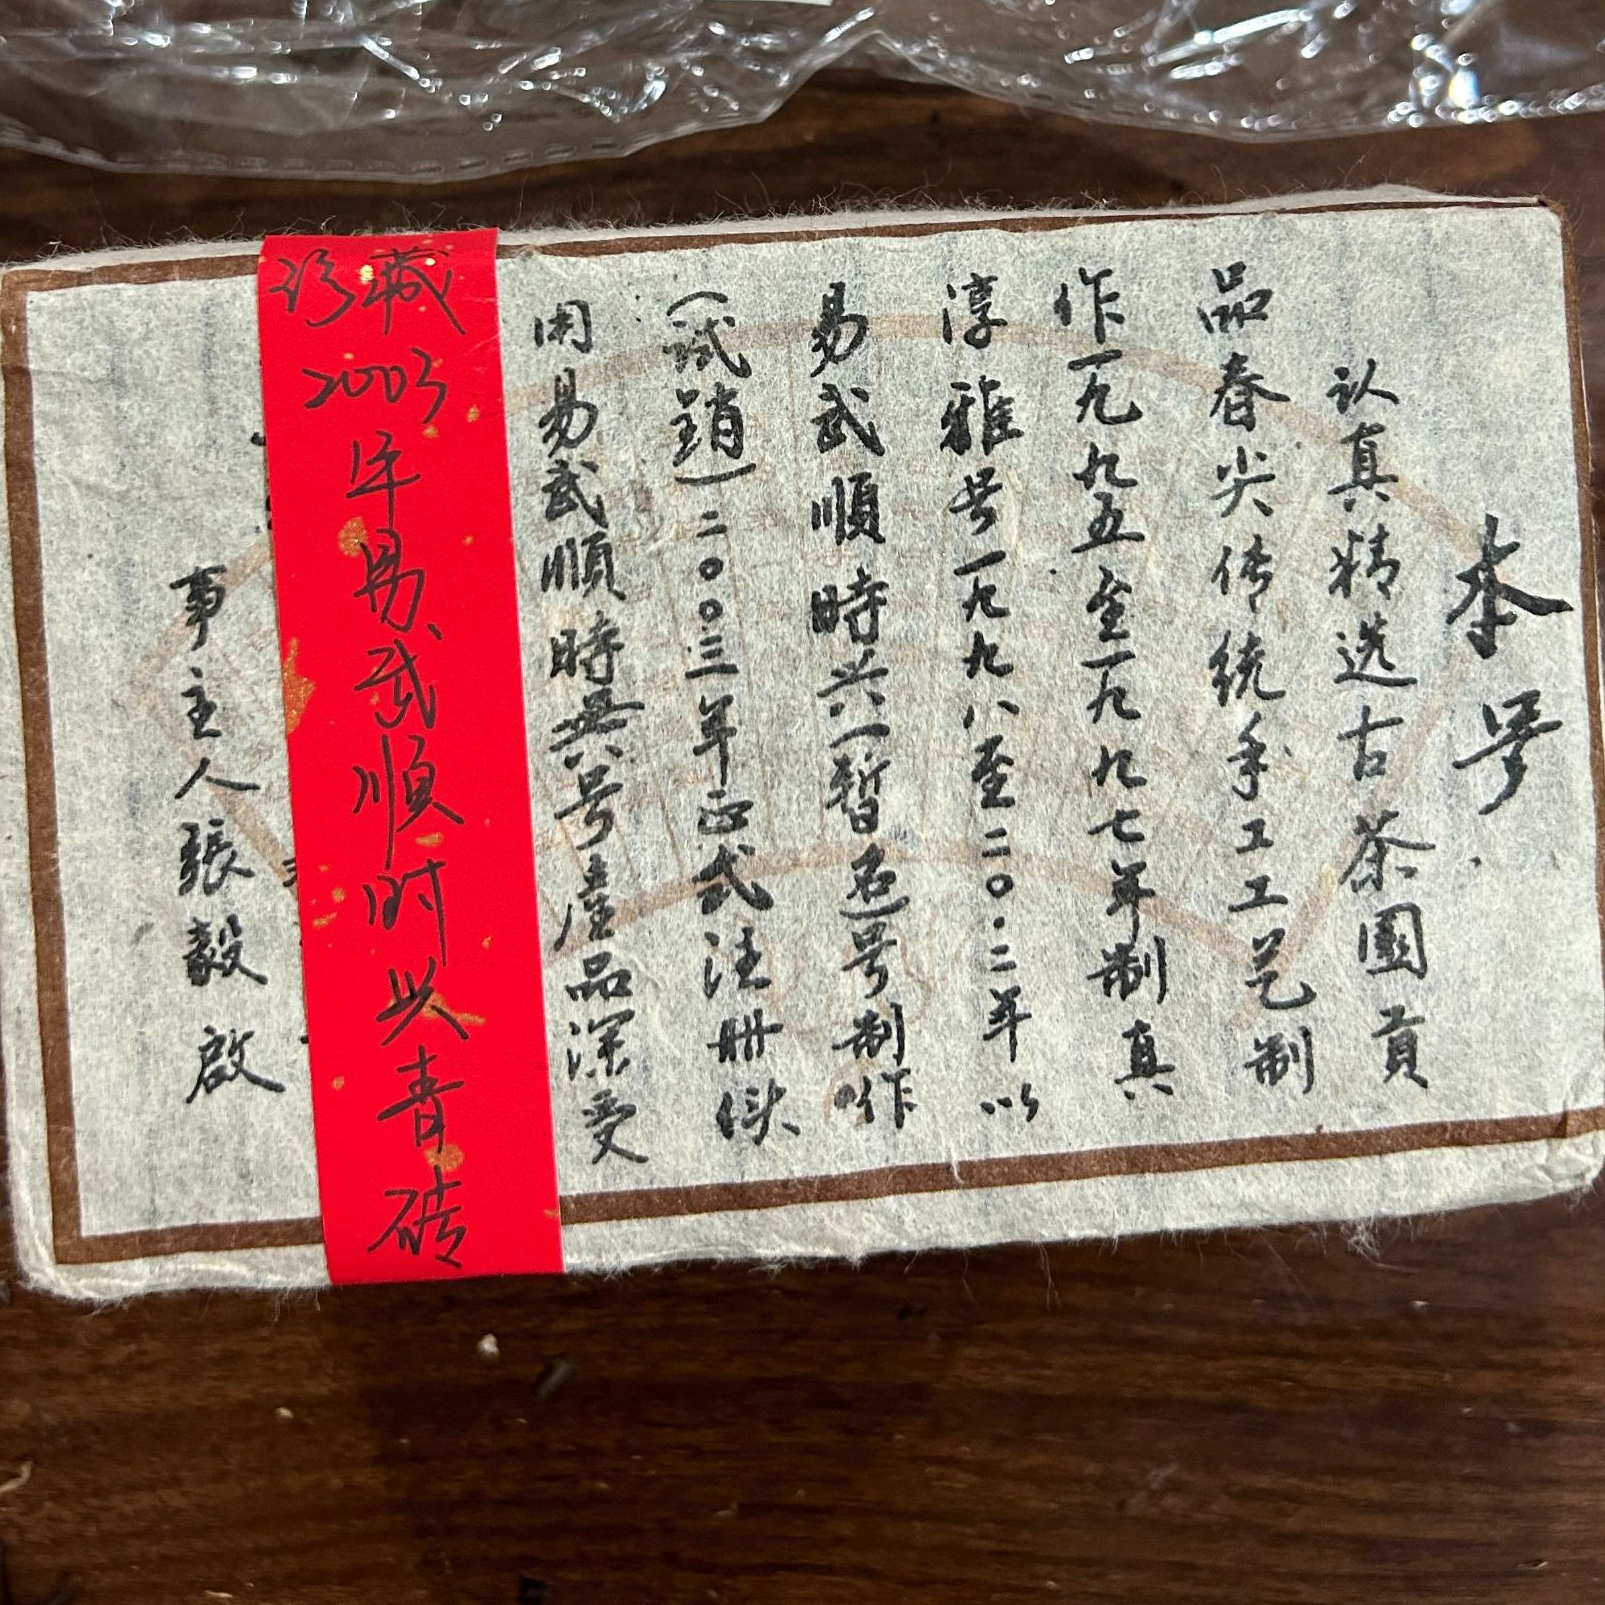 本号
认真精选古茶園貢
品春尖传统手工工艺制
作一九九五至一九九七年制真
淳雅号一九九八至二〇〇二年以
易武順時兴一暂名号制作
(试銷)二〇〇三年正式注册使
用易武順時興号產品深受
珍藏2003年易武顺时兴青砖
事主人張毅啟